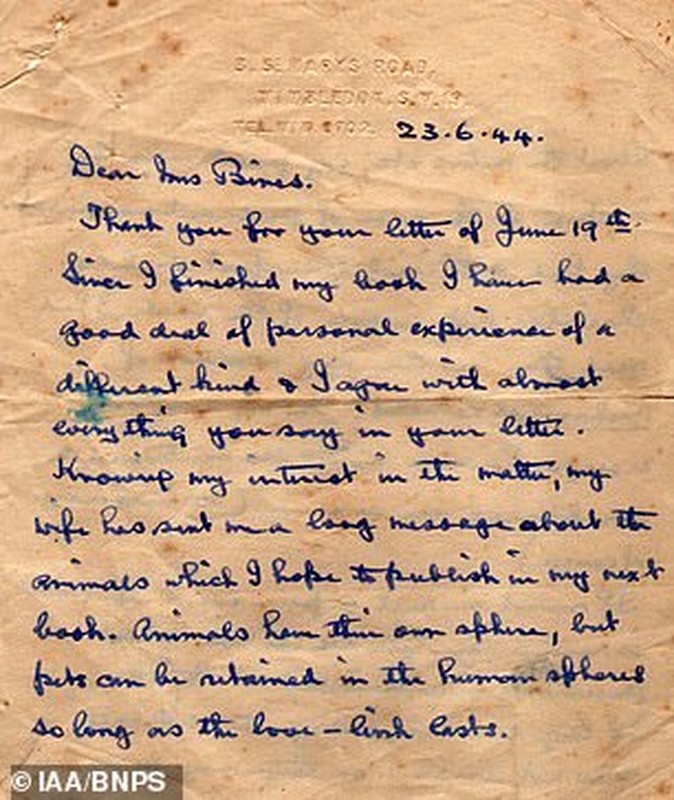 3. ST MARYS ROAD,
WIMBLEDON, S.W.19.
TEL. WIM. 6702.
23.6.44.
Dear Mrs Bines.
Thank you for your letter of June 19th.
Since I finished my book I have had a
good deal of personal experience of a
different kind & I agree with almost
everything you say in your letter.
Knowing my interest in the matter, my
wife has sent me a long message about the
animals which I hope to publish in my next
book. Animals have their own sphere, but
pets can be retained in the human spheres
so long as the love-link lasts.
© IAA/BNPS